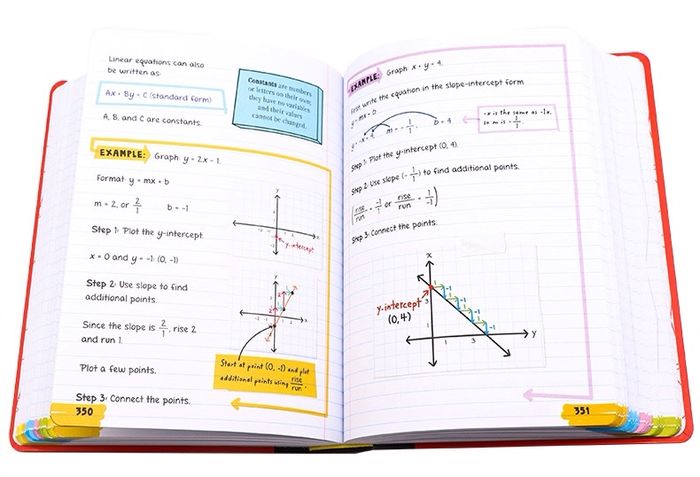 Linear equations can also
be written as:
Ax + By = C (standard form)
A, B, and C are constants.
Constants are numbers
or letters on their own;
they have no variables
and their values
cannot be changed.
EXAMPLE: Graph y = 2x - 1.
Format: y = mx + b
m = 2, or 2/1 b = -1
Step 1: Plot the y-intercept.
x = 0 and y = -1: (0, -1)
y
x
y-intercept
Step 2: Use slope to find
additional points.
Since the slope is 2/1, rise 2
and run 1.
Plot a few points.
Step 3: Connect the points.
y
x
Start at point (0, -1) and plot
additional points using rise/run.
350
EXAMPLE: Graph x + y = 4.
First write the equation in the slope-intercept form
y = mx + b
y = -x + 4 m = -1/1 b = 4
-x is the same as -1x,
so m is -1/1.
Step 1: Plot the y-intercept (0, 4).
Step 2: Use slope (-1/1) to find additional points.
(rise/run = -1/1 or rise/run = 1/-1)
Step 3: Connect the points.
x
y-intercept
(0, 4)
3
1
1
-1
1
-1
1
-1
1
-1
1
3
y
351